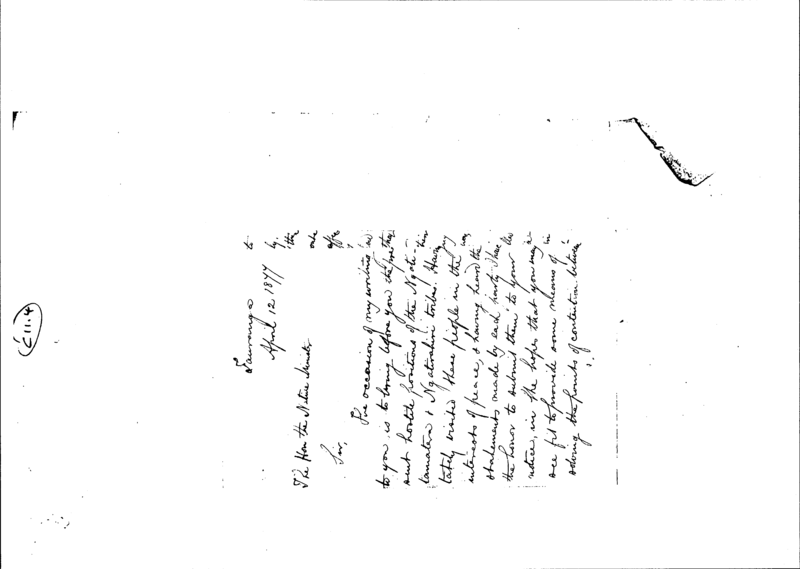 Tauranga
April 12 1877
The Hon the Native Minister
Sir,
The occasion of my writing
to you is to bring before you the pre
sent hostile positions of the Ngati-
tamatera & Ngatirahiri tribes. Having
lately visited these people in the
interests of peace, & having heard the
statements made by each party I have
the honor to submit them to your
notice, in the hopes that you may
see fit to provide some means of
solving the points of contention between
to
by
the
and
C11.4